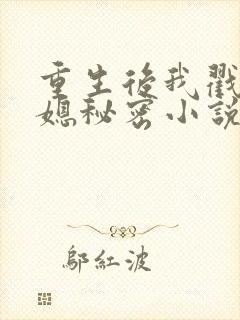 重生後我戳
媳秘密小說
鄔紅波